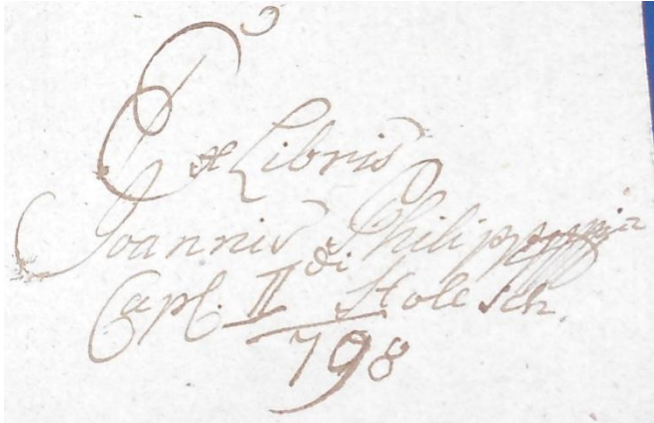 Ex Libris
Joannis Philipp
Capl. II di Holesch.
798